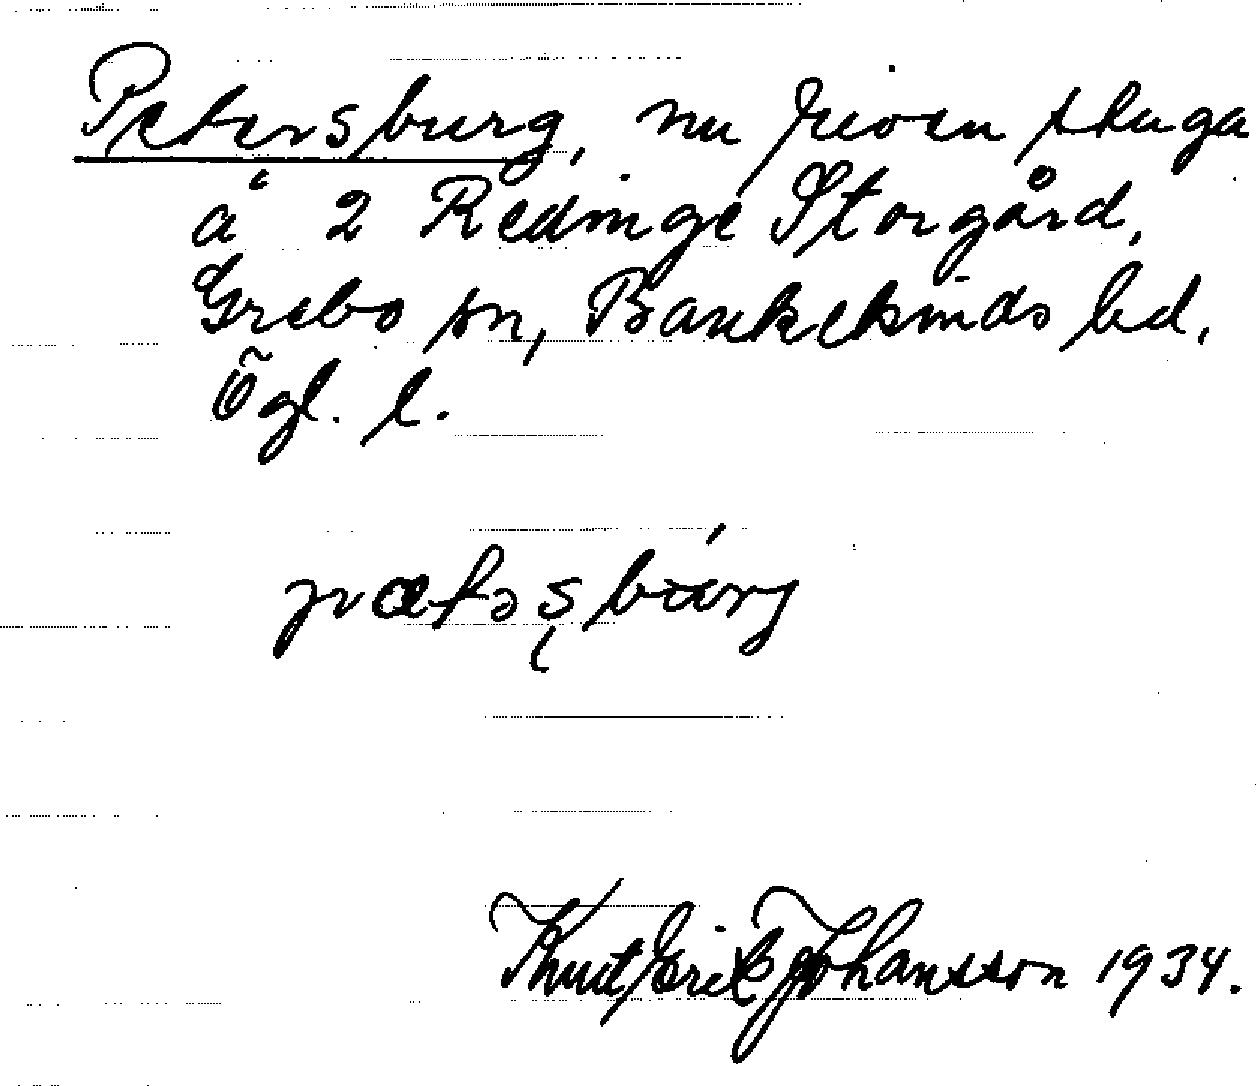 Petersburg, nu riven stuga
å 2 Redinge Storgård,
Grebo sn, Bankekinds hd.
Ögl. l.
Knut Erik Johansson 1934.